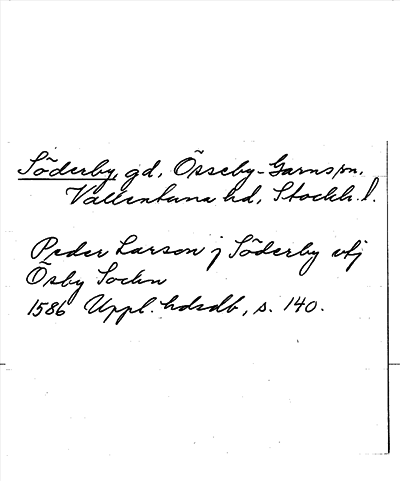 Söderby, gd, Össeby-Garns sn,
Vallentuna hd, Stockh. l.
Peder Larson j Söderby vtj
Ösby Sockn
1586 Uppl. hdsdb, s. 140.